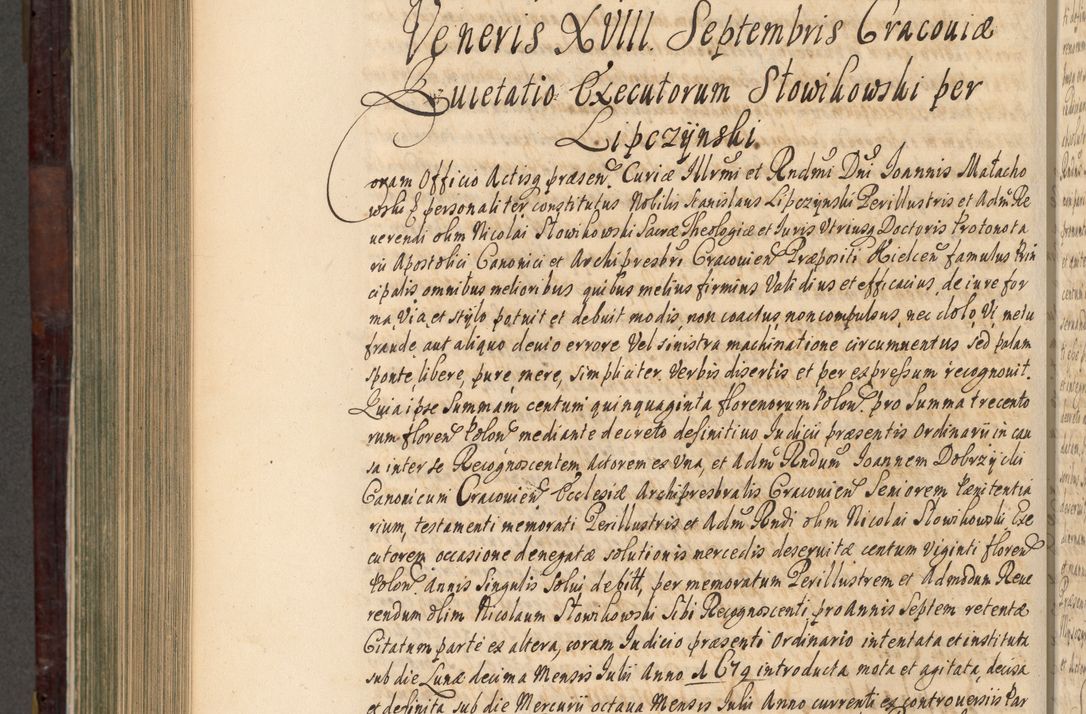 Veneris XVIII. Septembris Cracouiæ
Quietatio Executorum Słowikowski per
Lipczÿnski.
Coram Officio Actisq̃ præsen. Curiæ Illrmi et Rndmi Dni Joannis Małacho
wski &c personaliter constitutus Nobilis Stanislaus Lipczynski Perillustris et Adm Re
uerendi olim Nicolai Słowikowski Sacræ Theologiæ et Iuris Vtriusq̃ Doctoris Protonota
rii Apostolici Canonici et Archipresbri Cracouien Præpositi Kielcen famulus Prin
cipalis omnibus melioribus quibus melius firmius Validius et efficacius, de iure for
ma, Via, et stylo potuit et debuit modis, non coactus, non compulsus, nec dolo, Vi, metu
fraude aut aliquo deuio errore Vel sinistra machinatione circumuentus sed palam
sponte, libere, pure, mere, simpliciter Verbis disertis et per expressum recognouit.
Quia ipse Summam centum quinquaginta florenorum Polon. pro Summa trecento
rum floren Polon mediante decreto definitiuo Iudicii præsentis Ordinarii in cau
sa inter se Recognoscentem Actorem ex Vna, et Adm Rndum Joannem Dobrzycki
Canonicum Cracouien Ecclesiæ Archipresbralis Cracouien Seniorem Pænitentia
rium, testamenti memorati Perillustris et Adm Rndi olim Nicolai Słowikowski Exe
cutorem occasione denegatæ solutionis mercedis deseruitæ centum Viginti floren
Polon. annis Singulis Solui debitt, per memoratum Perillustrem et Admodum Reue
rendum olim Nicolaum Słowikowski Sibi Recognoscenti, pro Annis Septem retentæ
Citatum parte ex altera, coram Iudicio præsenti Ordinario intentata et instituta
sub die Lunæ decima Mensis Julii Anno 1679 introducta mota et agitata, decisa
et definita sub die Mercurii octaua Mensis Julii Anno currenti ex controuersiis Par